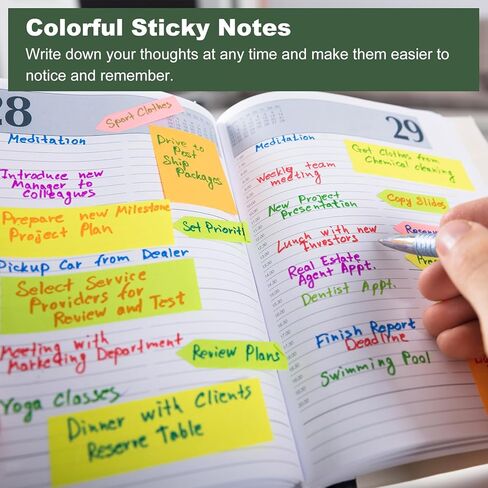 Colorful Sticky Notes
Write down your thoughts at any time and make them easier to
notice and remember.
28
Sport Clothes
Meditation
Drive to
Post
Ship
Packages
Introduce new
Manager to
Colleagues
Prepare new Milestone
Project Plan
Set Priorit
Pickup Car from Dealer
Select Service
Providers for
Review and Test
Meeting with
Marketing Department
Review Plans
Yoga Classes
Dinner with Clients
Reserve Table
29
Meditation
Get Clothes from
Chemical cleaning
Weekly team
meeting
Copy Slides
New Project
Presentation
Lunch with new
Investors
Real Estate
Agent Appt.
Dentist Appt.
Finish Report
Deadline
Swimming Pool